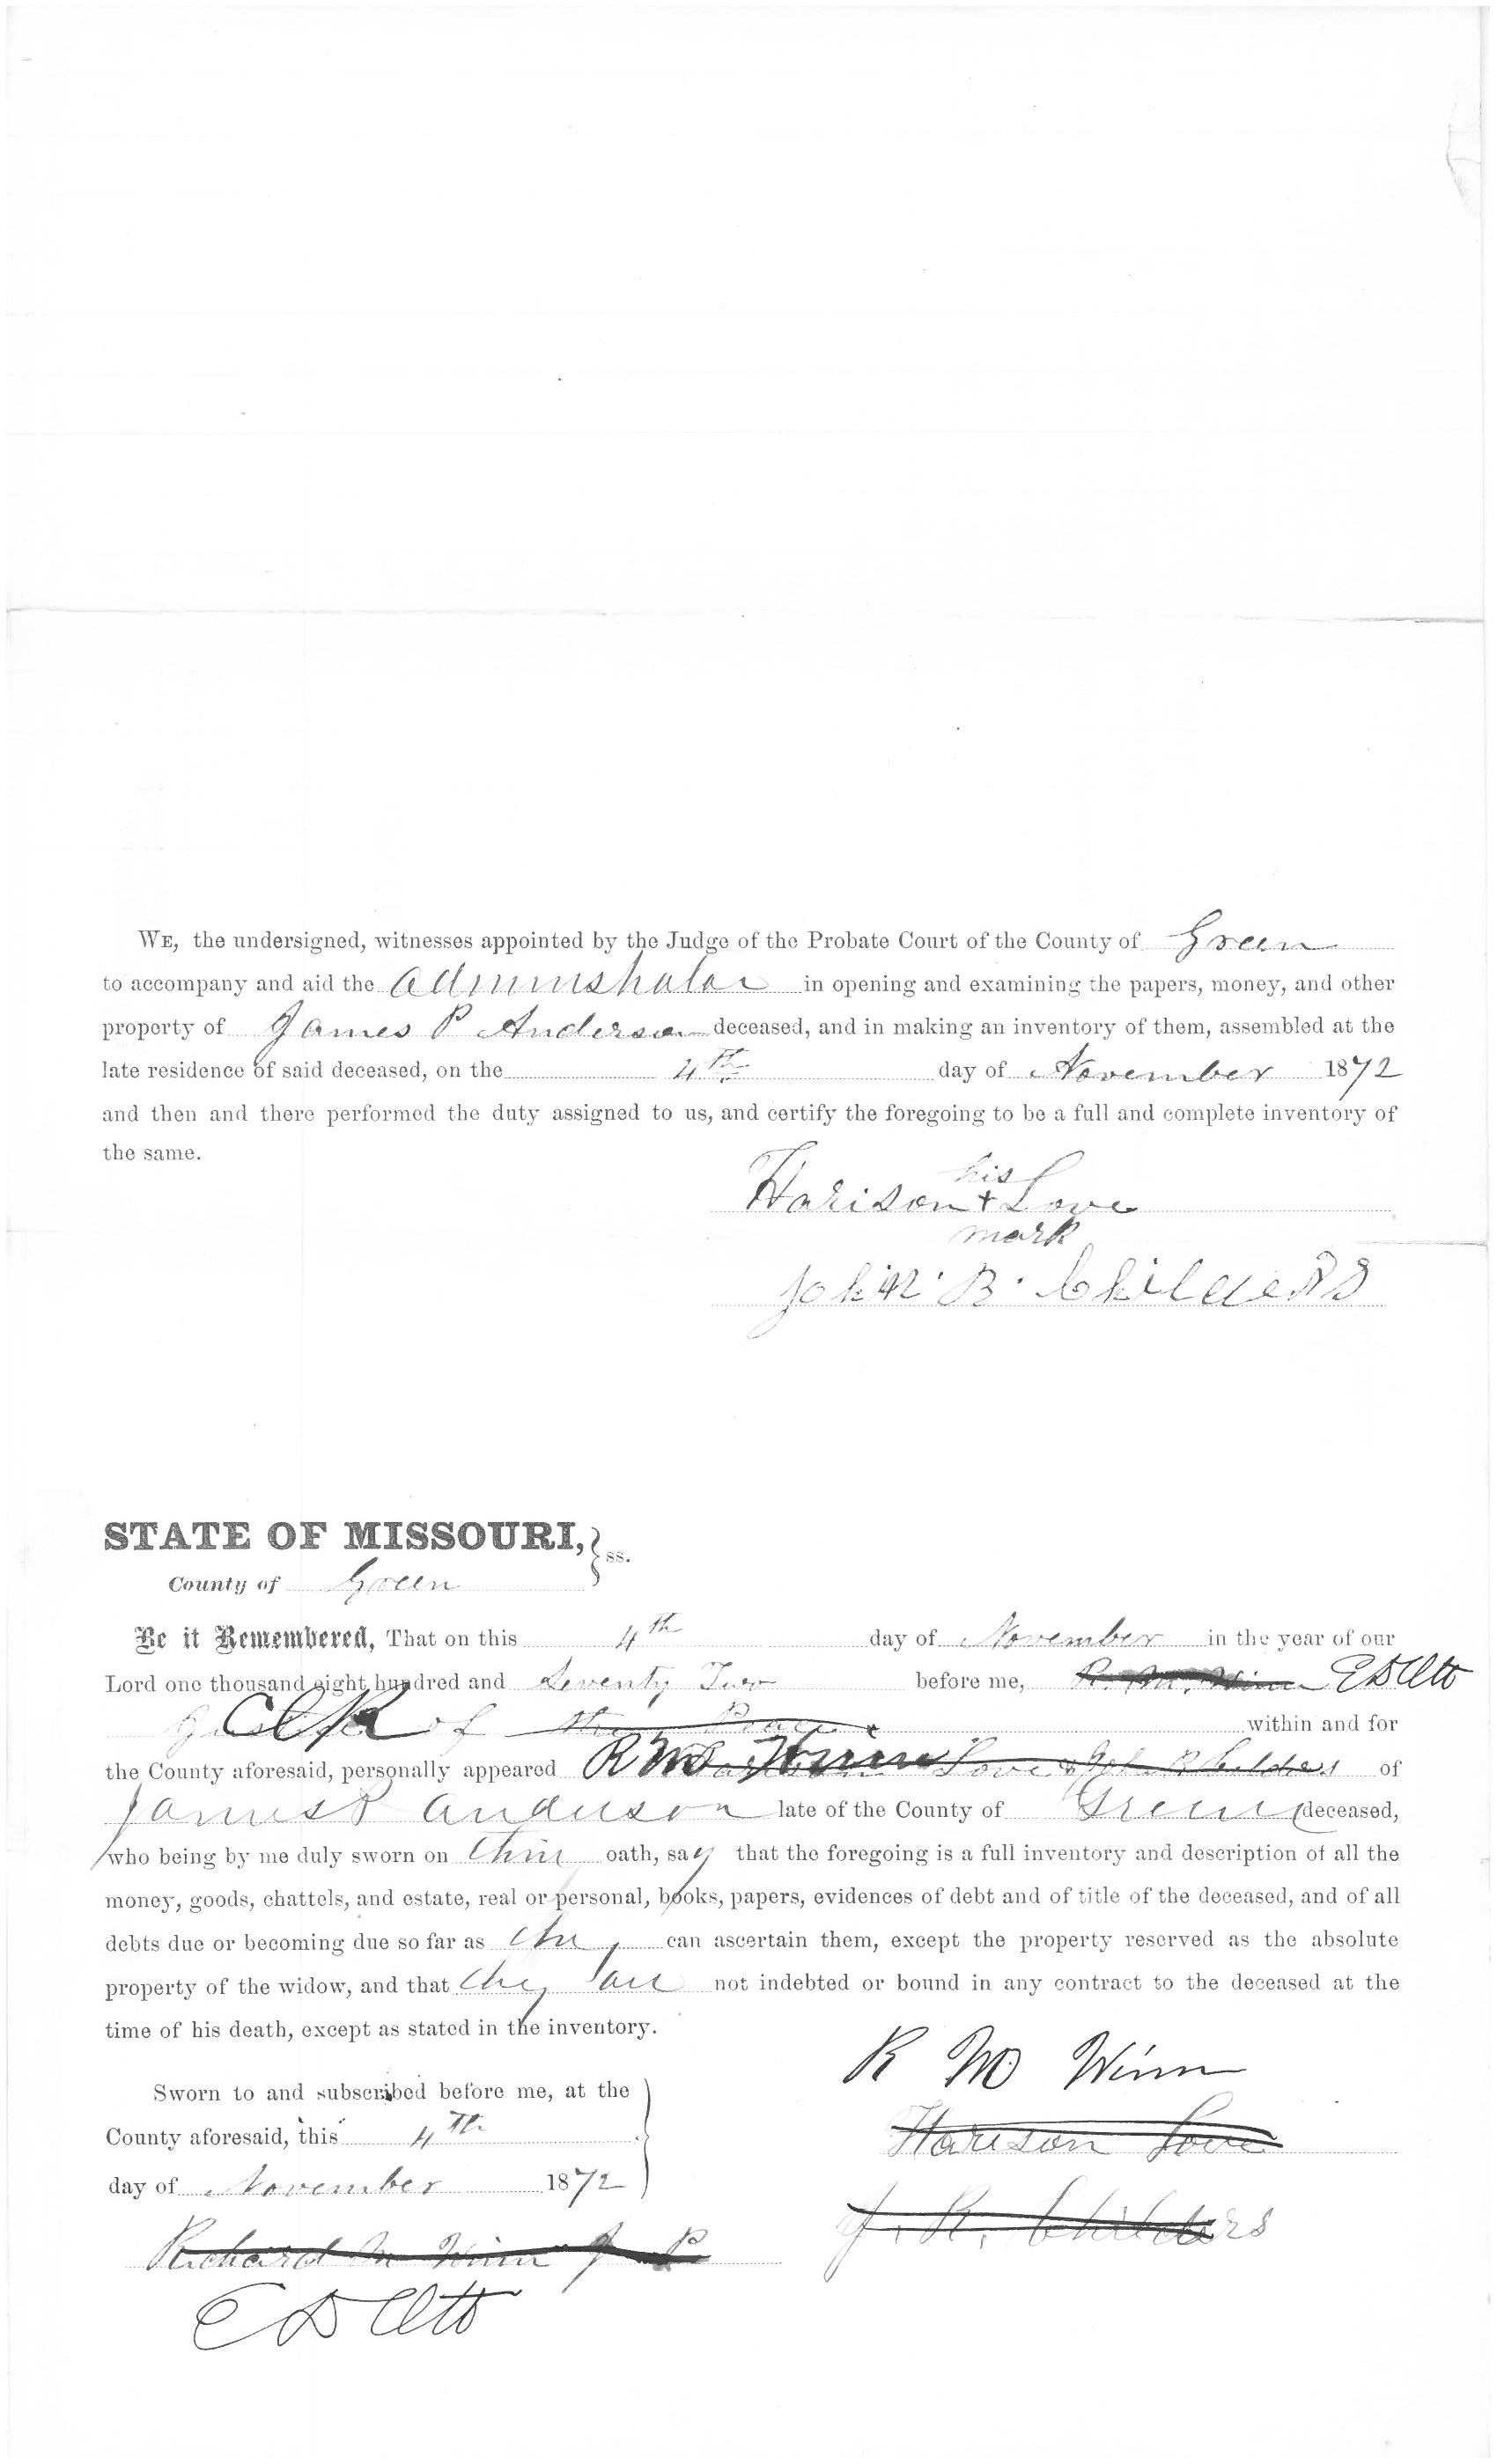 WE, the undersigned, witnesses appointed by the Judge of the Probate Court of the County of Green
to accompany and aid the administrator in opening and examining the papers, money, and other
property of James P Anderson deceased, and in making an inventory of them, assembled at the
late residence of said deceased, on the 4th day of November 1872
and then and there performed the duty assigned to us, and certify the foregoing to be a full and complete inventory of
the same.
his
Harison + Love
mark
John. B. Childers
STATE OF MISSOURI, } ss.
County of Green
Be it Remembered, That on this 4th day of November in the year of our
Lord one thousand eight hundred and Seventy Two before me, R. M. Winn E D Ott
Clk of the Peace within and for
the County aforesaid, personally appeared R M Winn Love & John B Childers of
James P Anderson late of the County of Greene deceased,
who being by me duly sworn on their oath, say that the foregoing is a full inventory and description of all the
money, goods, chattels, and estate, real or personal, books, papers, evidences of debt and of title of the deceased, and of all
debts due or becoming due so far as they can ascertain them, except the property reserved as the absolute
property of the widow, and that they are not indebted or bound in any contract to the deceased at the
time of his death, except as stated in the inventory.
R M Winn
Sworn to and subscribed before me, at the
County aforesaid, this 4th
Harison Love
day of November 1872
J. R. Childers
Richard M Winn J P
E D Ott